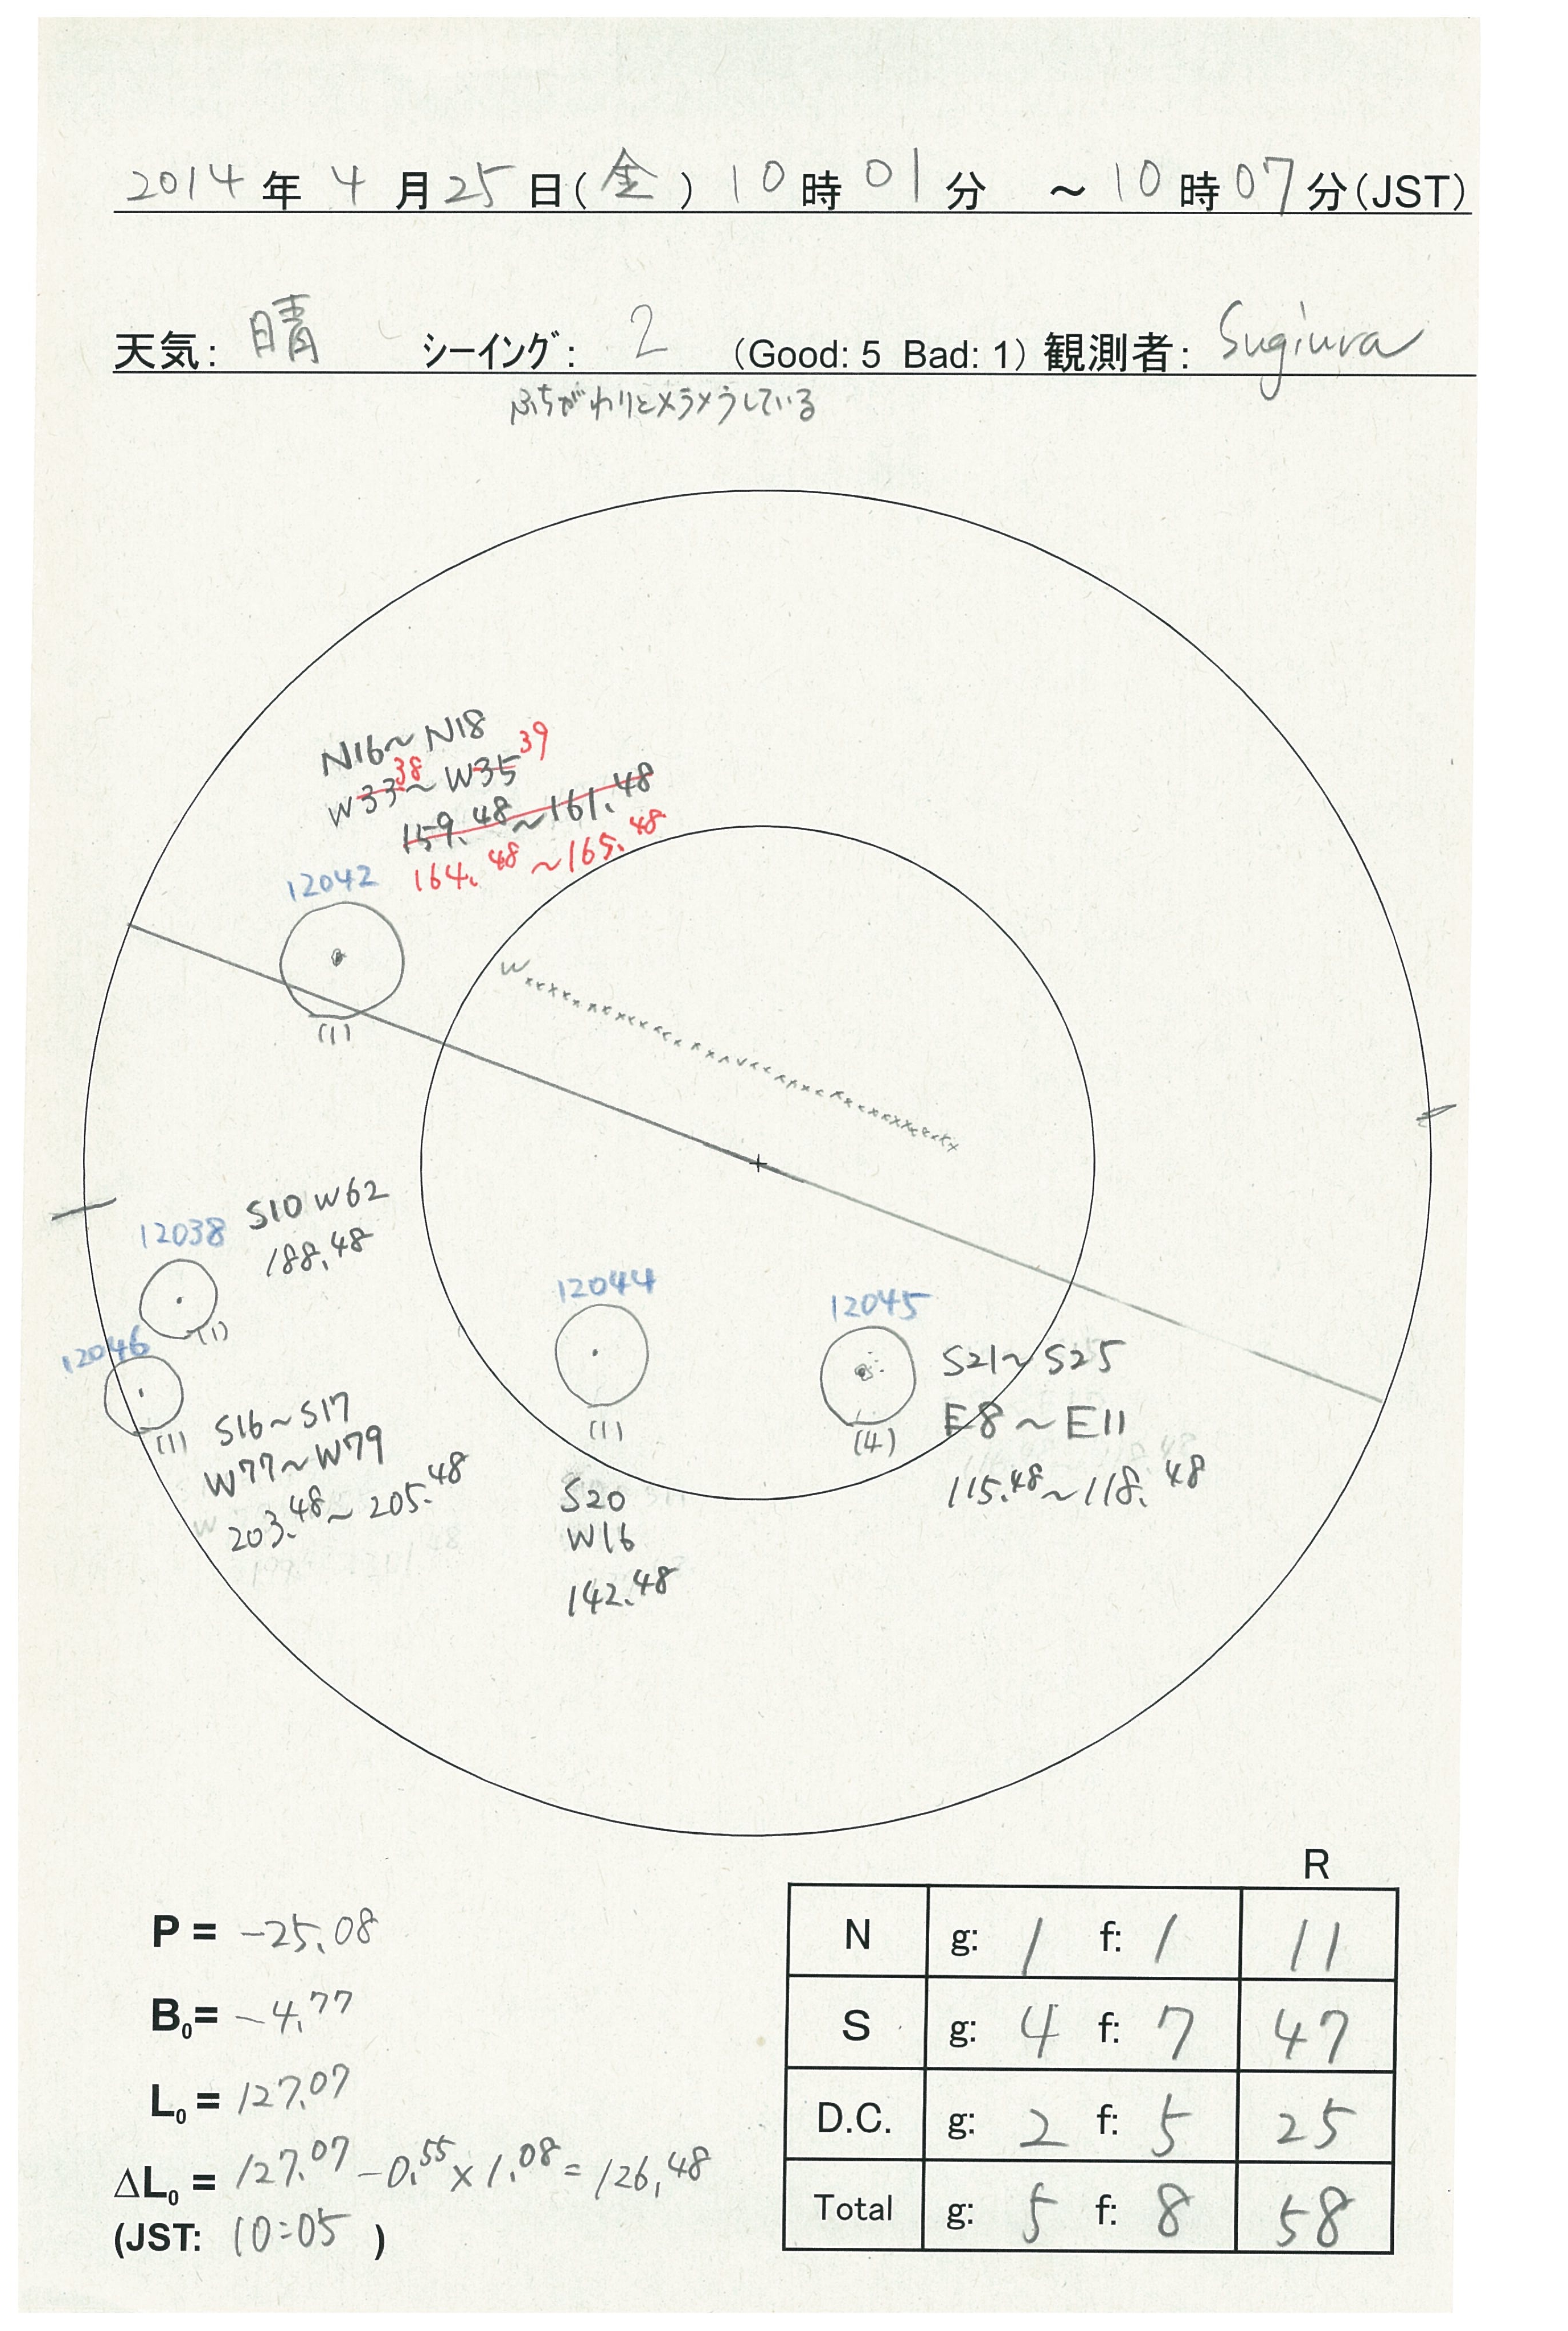 2014年4月25日(金) 10時01分 ～10時07分(JST)
天気: 晴 シーイング: 2 (Good: 5 Bad: 1) 観測者: Sugiura
ふちがわりとメラメラしている
N16～N18
W33 38～W35 39
159.48～161.48
164.48～165.48
12042
(1)
W
S10 W62
188.48
12038
(1)
12046
(1)
S16～S17
W77～W79
203.48～205.48
12044
(1)
S20
W16
142.48
12045
(4)
S21～S25
E8～E11
115.48～118.48
P = -25.08
B₀= -4.77
L₀ = 127.07
ΔL₀ = 127.07 - 0.55 × 1.08 = 126.48
(JST: 10:05 )
R
N g: 1 f: 1 11
S g: 4 f: 7 47
D.C. g: 2 f: 5 25
Total g: 5 f: 8 58